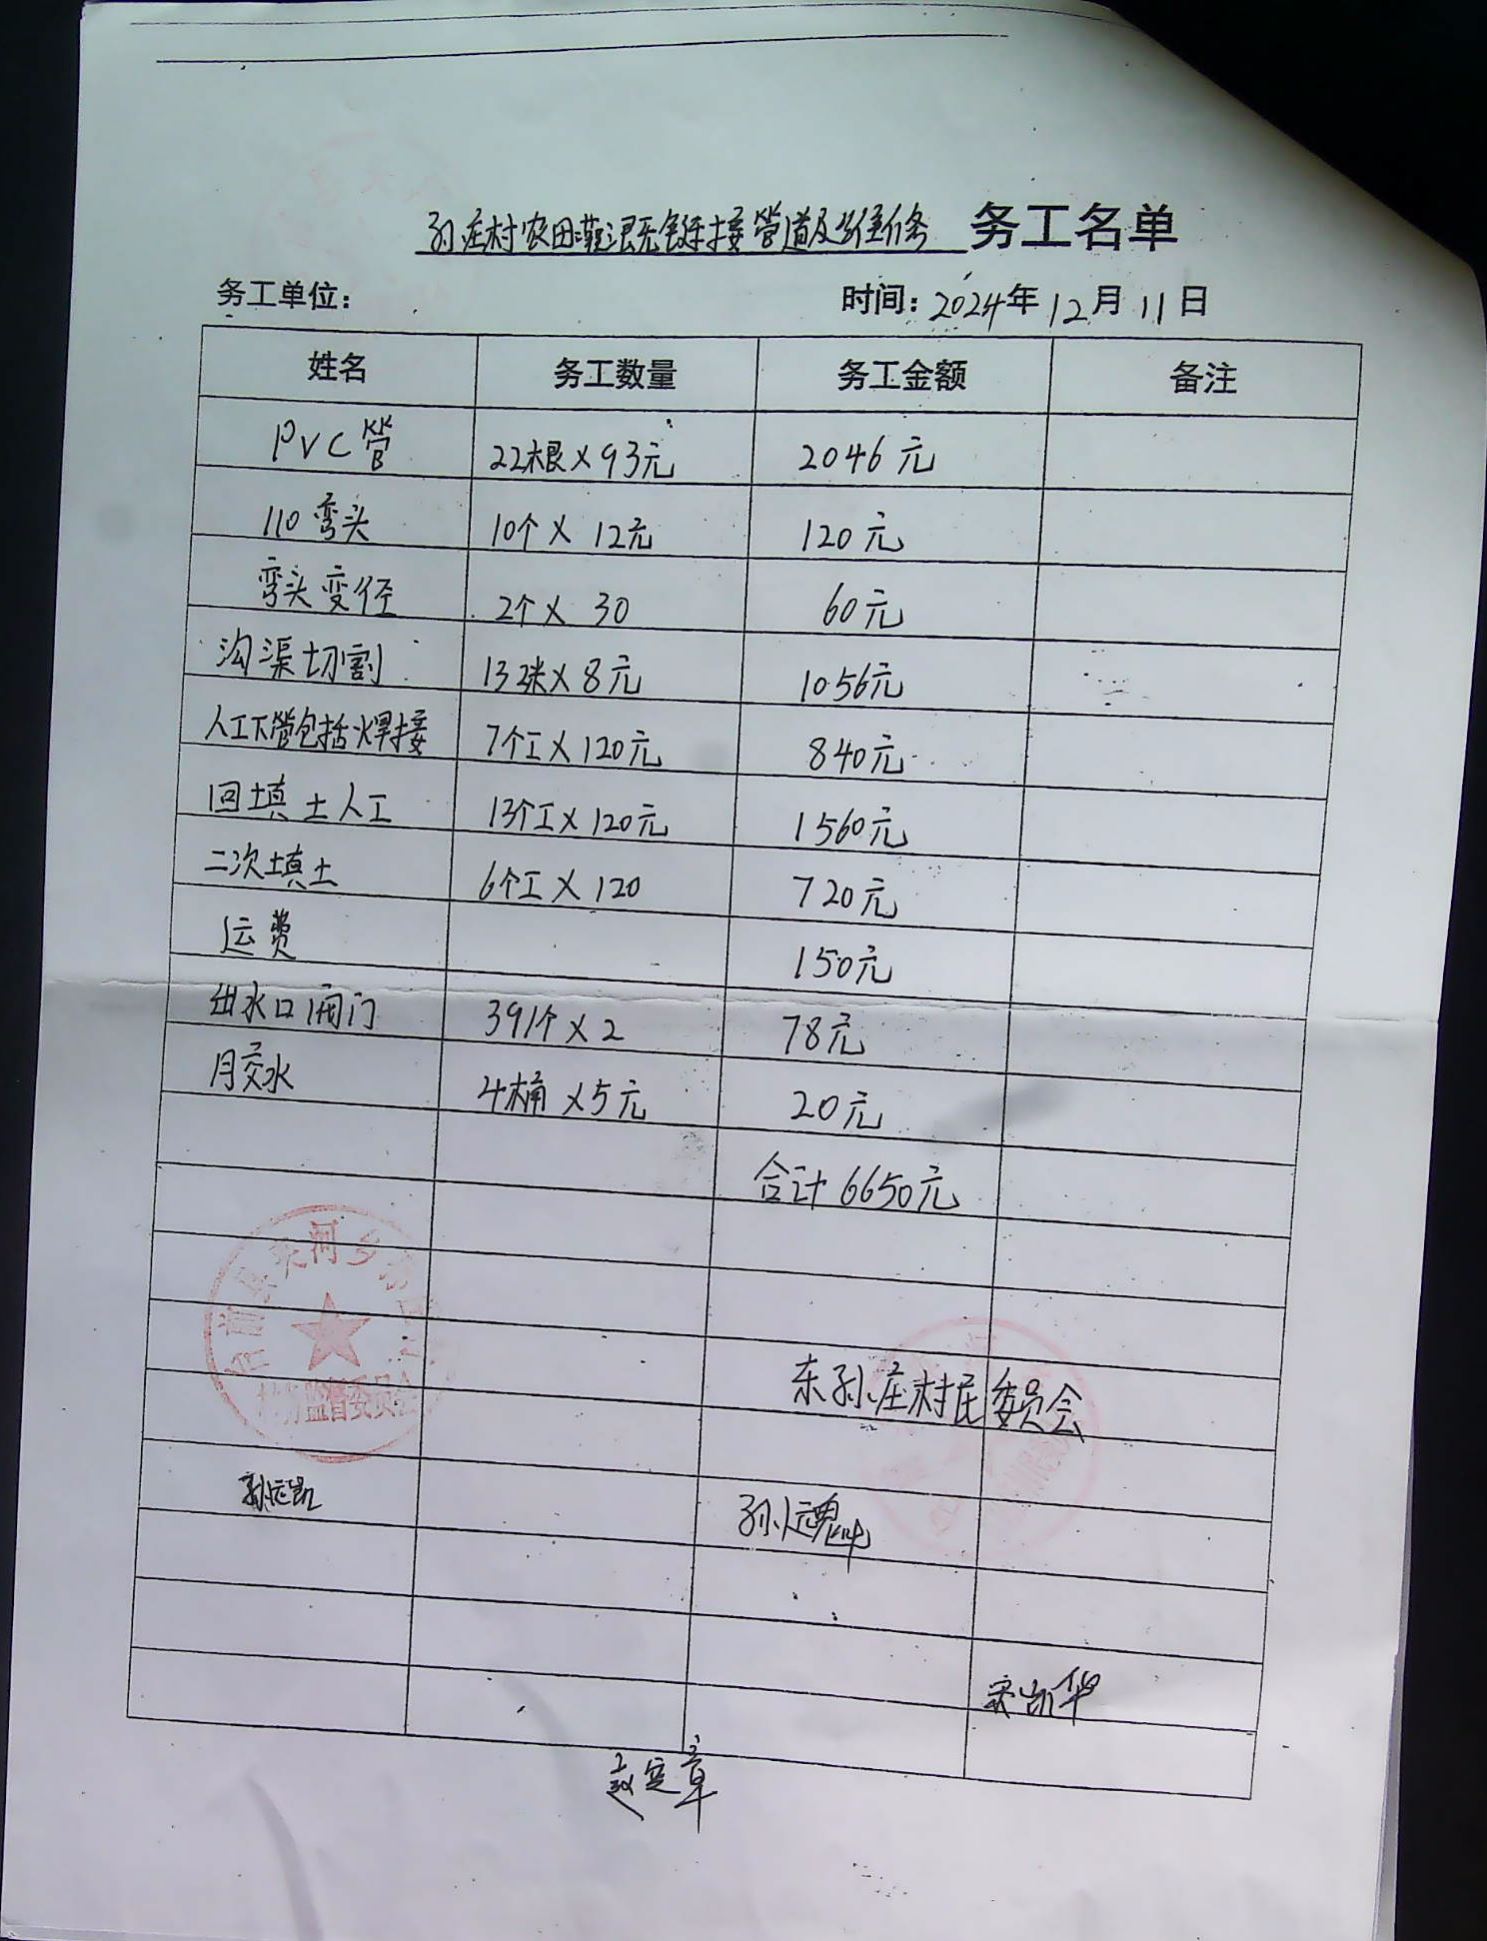 孙庄村农田灌溉无缝焊接管道及维修 务工名单
务工单位： 时间：2024年12月11日
姓名 务工数量 务工金额 备注
PVC管 22根×93元 2046元
110弯头 10个×12元 120元
弯头变径 2个×30 60元
沟渠切割 132米×8元 1056元
人工下管包括焊接 7个工×120元 840元
回填土人工 13个工×120元 1560元
二次填土 6个工×120 720元
运费 150元
出水口闸门 391个×2 78元
月交水 4桶×5元 20元
合计6650元
东孙庄村民委员会
监督委员会
赵定章